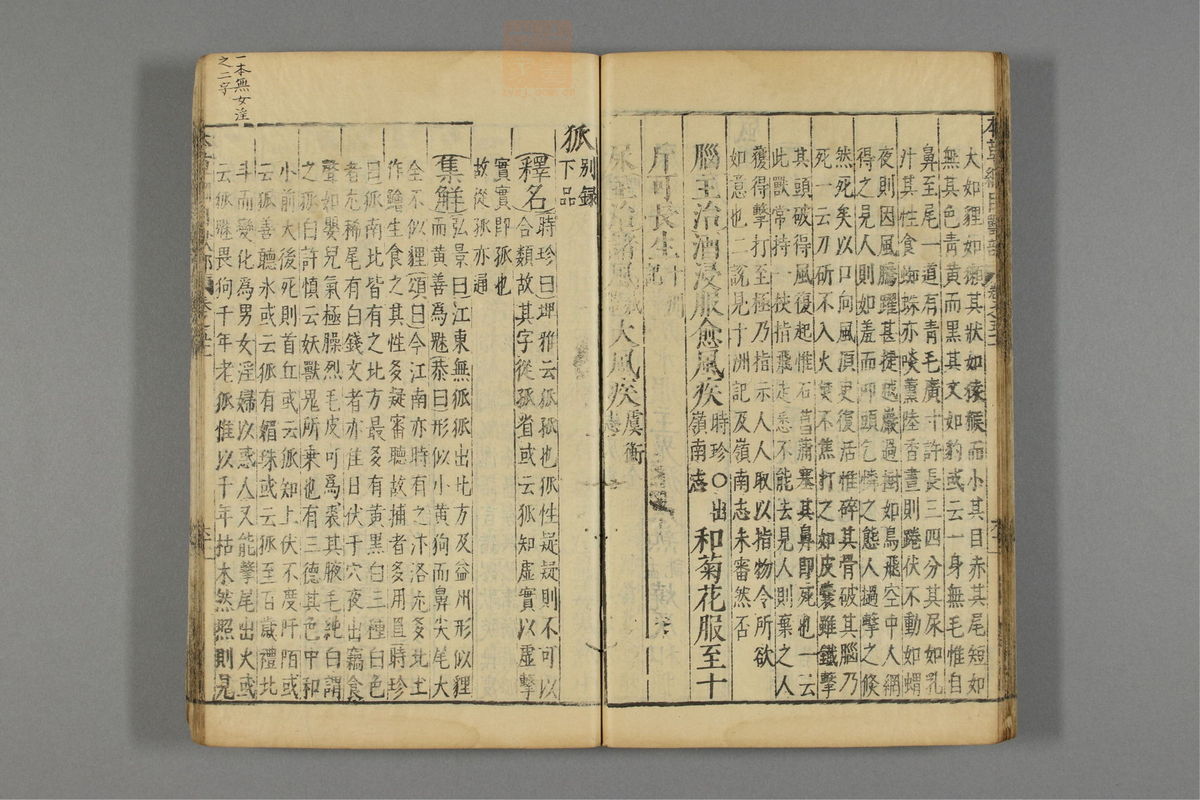 大如貍如獺其狀如猿猴而小其目赤其尾短如
無其色青黃而黑其文如豹或云一身無毛惟自
鼻至尾一道有青毛廣寸許長三四分其尿如乳
汁其性食蜘蛛亦啖薰陸香晝則蜷伏不動如螺
夜則因風騰躍甚捷越巖過樹如鳥飛空中人網
得之見人則如羞而叩頭乞憐之態人撾擊之倏
然死矣以口向風須臾復活惟碎其骨破其腦乃
死一云刀斫不入火焚不焦打之如皮囊雖鐵擊
其頭破得風復起惟石菖蒲塞其鼻即死也一云
此獸常持一杖指飛走悉不能去見人則棄之人
獲得擊打至極乃指示人人取以指物令所欲
如意也二說見十洲記及嶺南志未審然否
腦主治酒浸服愈風疾時珍○出嶺南志和菊花服至十
斤可長生十洲記
尿主治諸風大風疾虞衡志
狐別錄下品
釋名時珍曰埤雅云狐孤也狐性疑疑則不可以
合類故其字從孤省或云狐知虛實以虛擊
實實即孤也
故從孤亦通
集解弘景曰江東無狐狐出北方及益州形似貍
而黃善為魅恭曰形似小黃狗而鼻尖尾大
全不似貍頌曰今江南亦時有之汴洛尤多北土
作鱠生食之其性多疑審聽故捕者多用罝時珍
曰狐南北皆有之北方最多有黃黑白三種白色
者尤稀尾有白錢文者亦佳日伏于穴夜出竊食
聲如嬰兒氣極臊烈毛皮可為裘其腋毛純白謂
之狐白許慎云妖獸鬼所乘也有三德其色中和
小前大後死則首丘或云狐知上伏不度阡陌或
云狐善聽冰或云狐有媚珠或云狐至百歲禮北
斗而變化為男女淫婦以惑人又能擊尾出火或
云狐魅畏狗千年老狐惟以千年枯木然照則見
一本無女淫
之二字